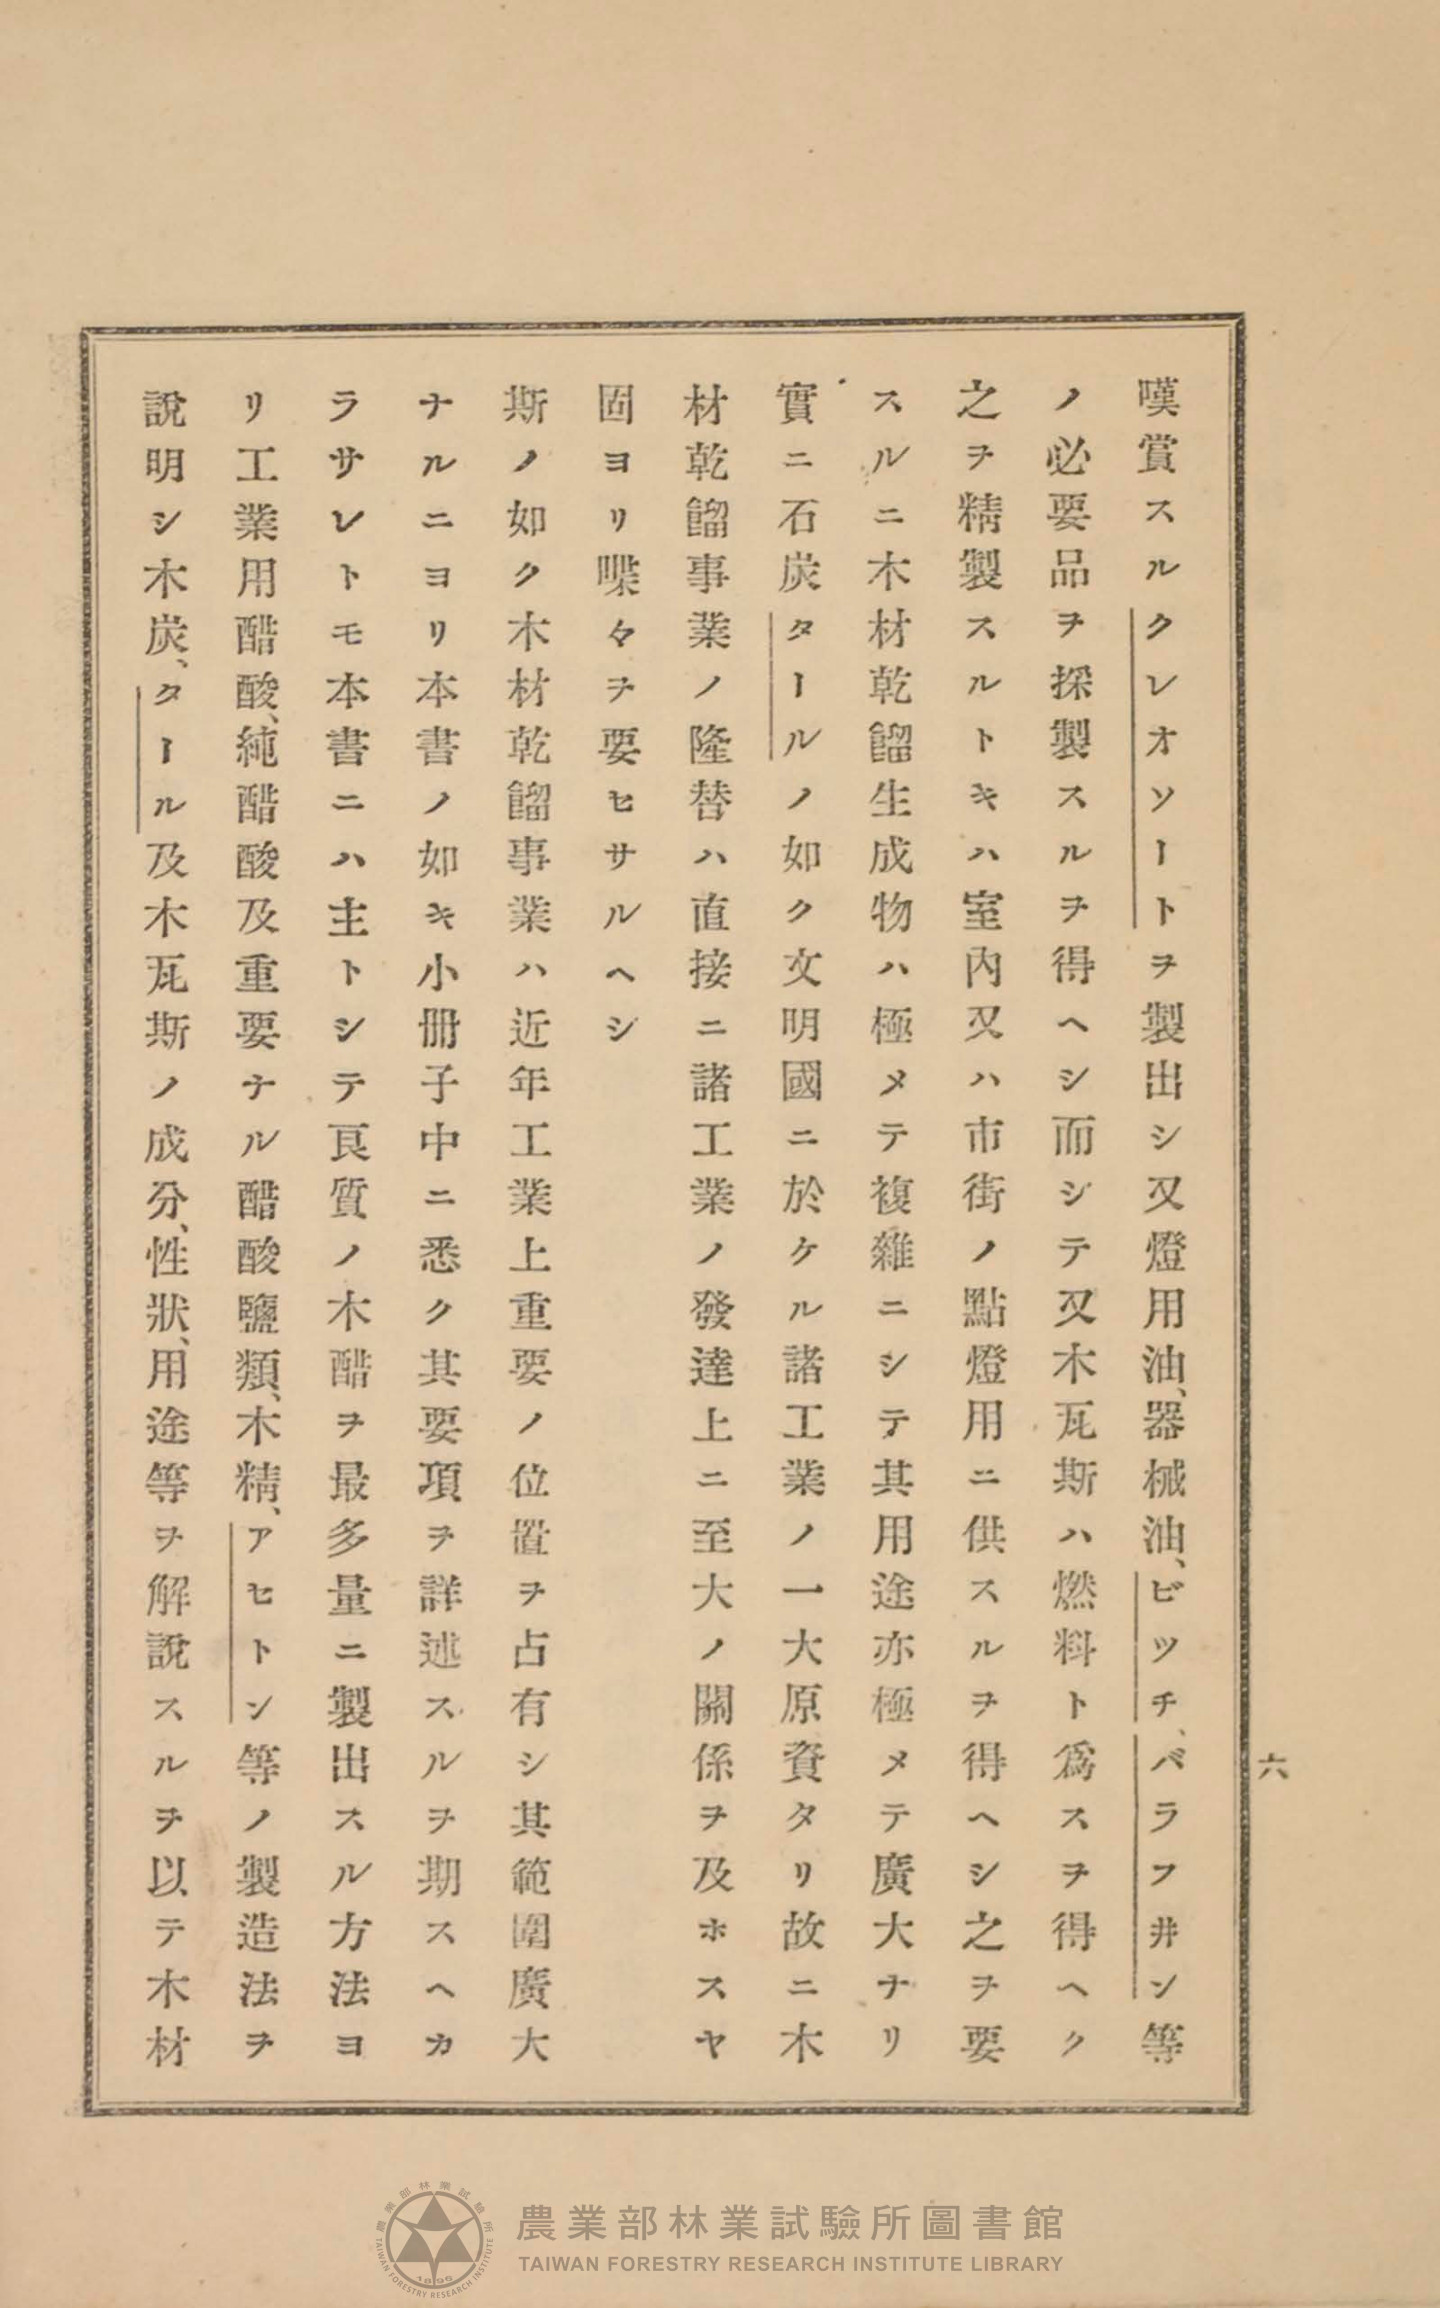 嘆賞スルクレオソートヲ製出シ又燈用油、器械油、ピツチ、パラフ井ン等
ノ必要品ヲ採製スルヲ得ヘシ而シテ又木瓦斯ハ燃料ト爲スヲ得ヘク
之ヲ精製スルトキハ室內又ハ市街ノ點燈用ニ供スルヲ得ヘシ之ヲ要
スルニ木材乾餾生成物ハ極メテ複雜ニシテ其用途亦極メテ廣大ナリ
實ニ石炭タールノ如ク文明國ニ於ケル諸工業ノ一大原資タリ故ニ木
材乾餾事業ノ隆替ハ直接ニ諸工業ノ發達上ニ至大ノ關係ヲ及ホスヤ
固ヨリ喋々ヲ要セサルヘシ
斯ノ如ク木材乾餾事業ハ近年工業上重要ノ位置ヲ占有シ其範圍廣大
ナルニヨリ本書ノ如キ小冊子中ニ悉ク其要項ヲ詳述スルヲ期スヘカ
ラサレトモ本書ニハ主トシテ良質ノ木醋ヲ最多量ニ製出スル方法ヨ
リ工業用醋酸、純醋酸及重要ナル醋酸鹽類、木精、アセトン等ノ製造法ヲ
說明シ木炭、タール及木瓦斯ノ成分、性狀、用途等ヲ解說スルヲ以テ木材
六
農業部林業試驗所圖書館
TAIWAN FORESTRY RESEARCH INSTITUTE LIBRARY
農業部林業試驗所
TAIWAN FORESTRY RESEARCH INSTITUTE
1896